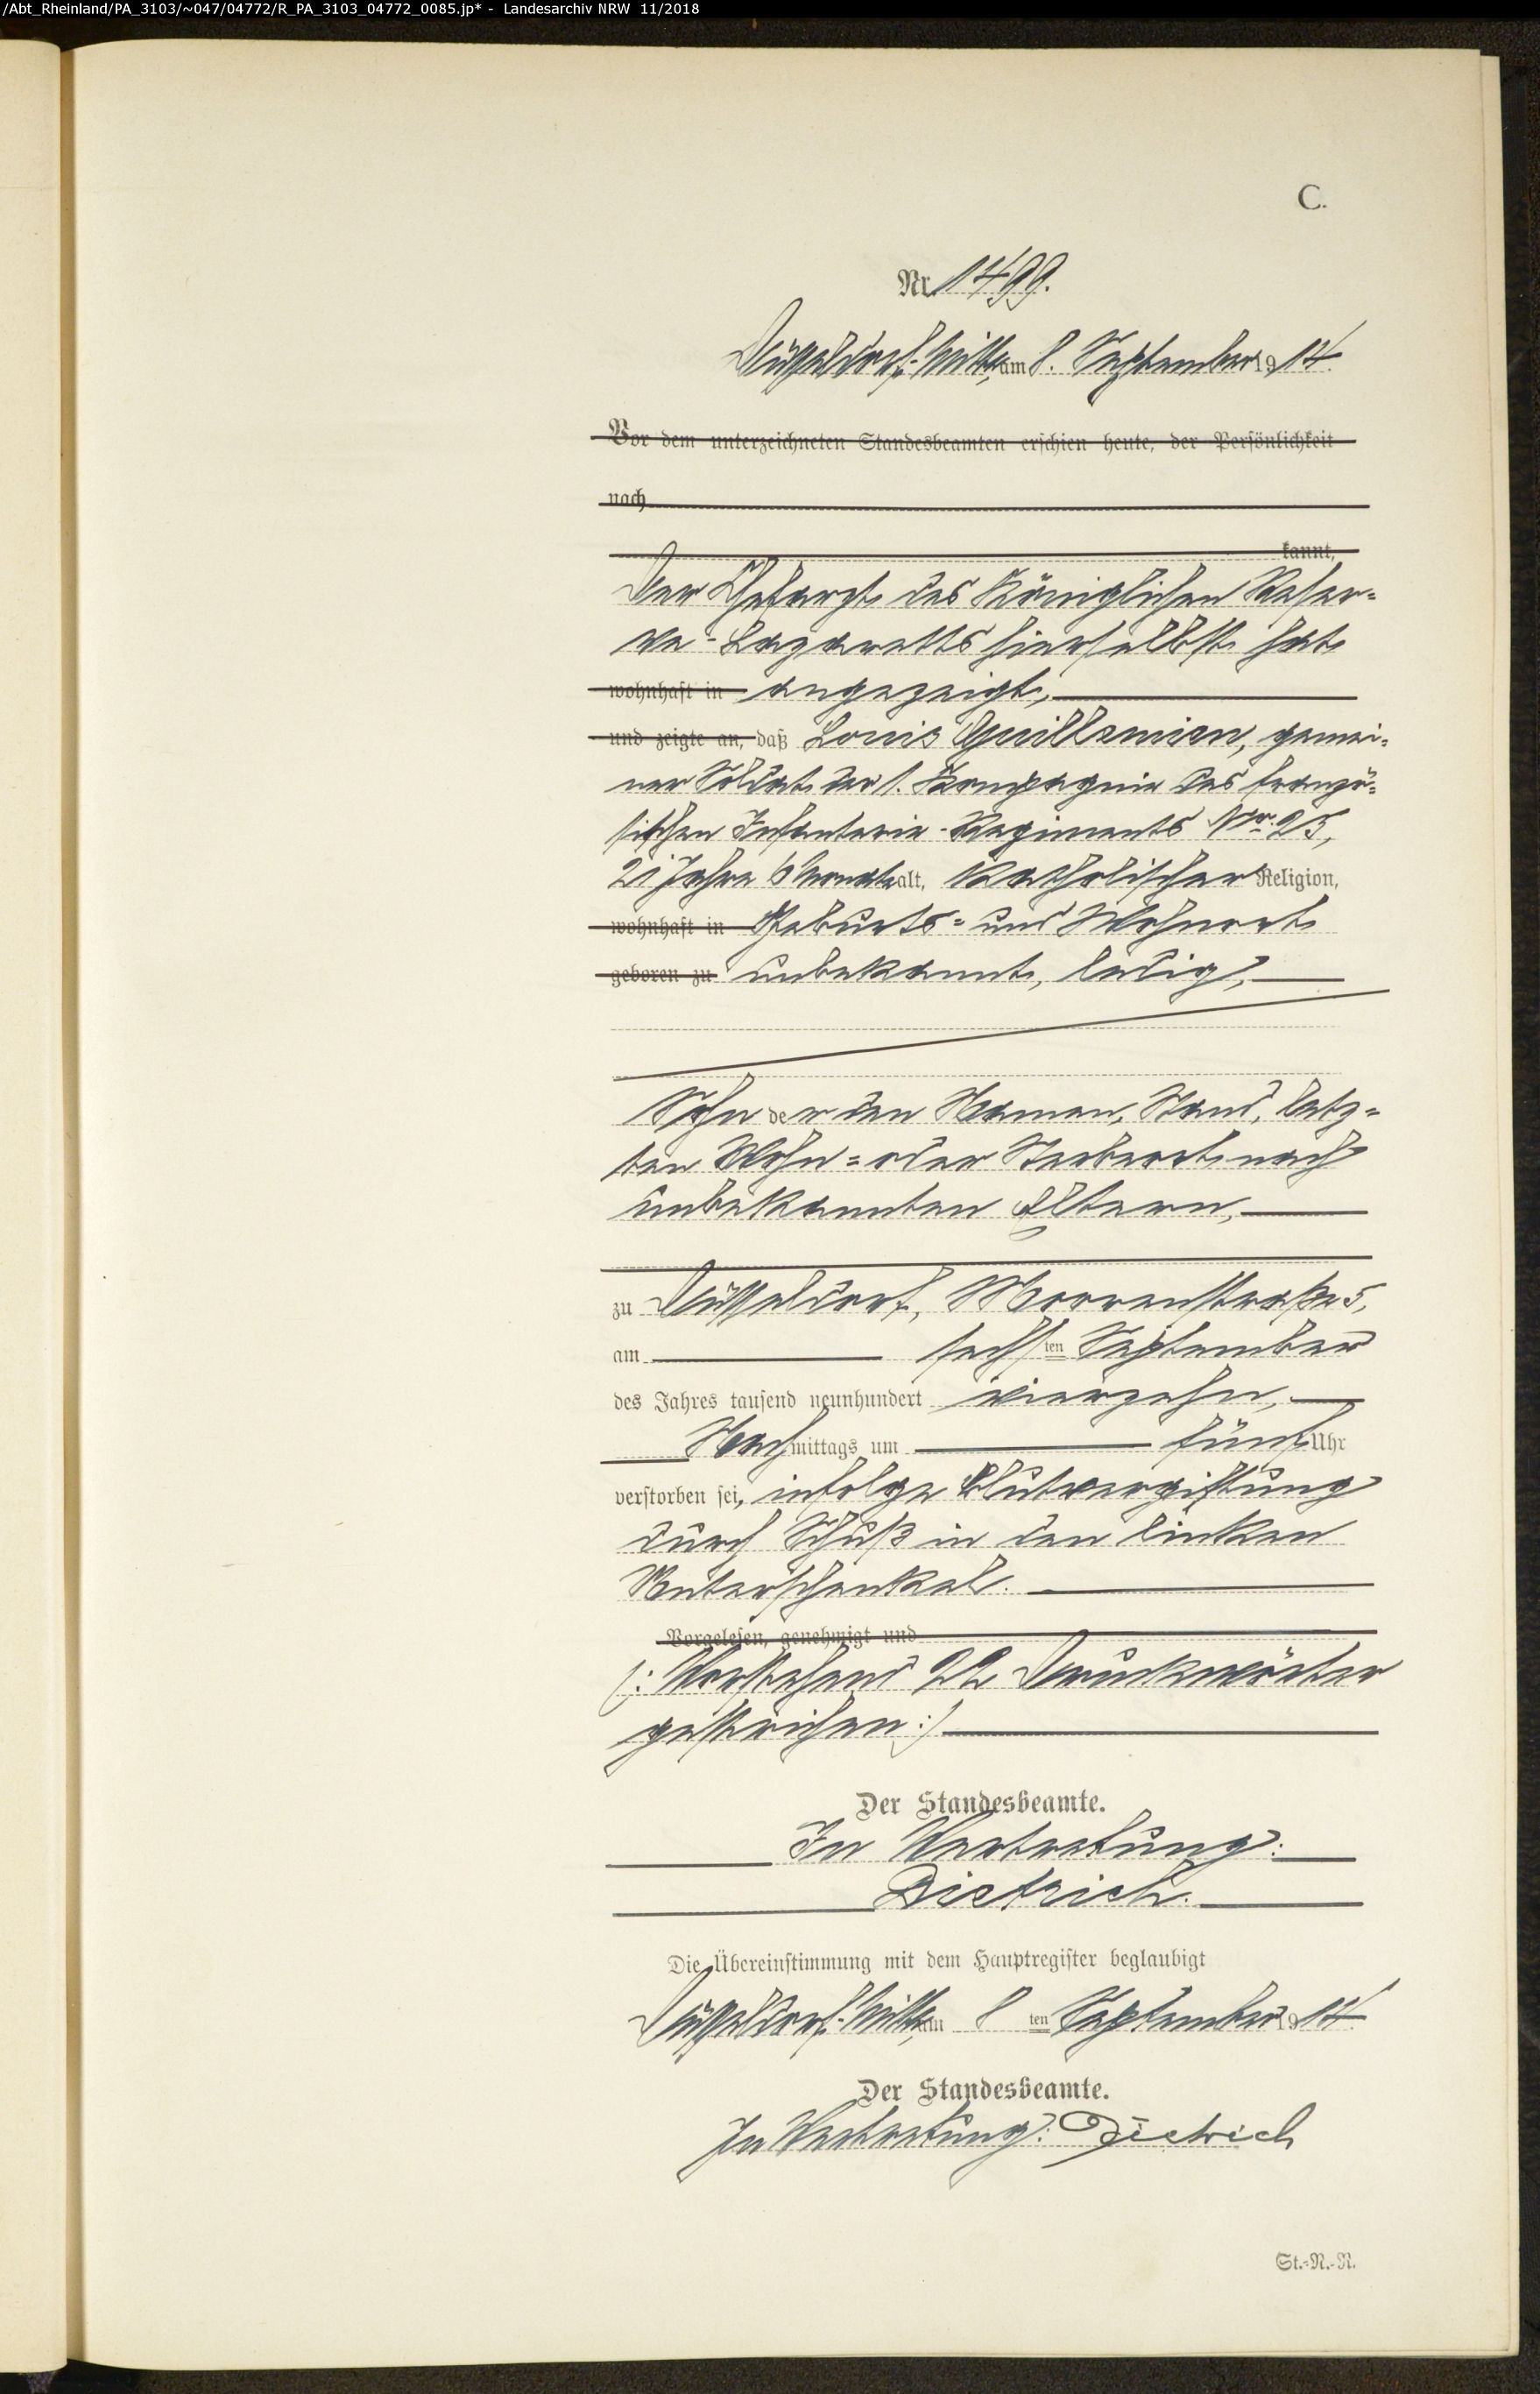 /Abt_Rheinland/PA_3103/~047/04772/R_PA_3103_04772_0085.jp* - Landesarchiv NRW 11/2018
C.
Nr. 1499.
Düsseldorf-Mitte, am 8. September 1914.
Vor dem unterzeichneten Standesbeamten erschien heute, der Persönlichkeit
nach
kannt,
Der Chefarzt des Königlichen Reser-
ve-Lazaretts hierselbst hat
wohnhaft in angezeigt,
und zeigte an, daß Louis Guillemien, gemei-
ner Soldat der 1. Kompagnie des franzö-
sischen Infanterie-Regiments Nr. 25,
21 Jahre 6 Monate alt, katholischer Religion,
wohnhaft in Geburts- und Wohnort
geboren zu unbekannt, ledig,
Sohn der den Namen, Stand, letz-
ten Wohn- oder Sterbeort nach
unbekannten Eltern,
zu Düsseldorf, Moorenstraße 5,
am sechsten September
des Jahres tausend neunhundert vierzehn,
Nachmittags um fünf Uhr
verstorben sei, infolge Blutvergiftung
durch Schuß in den linken
Unterschenkel.
Vorgelesen, genehmigt und
(: Vorstehend 22 Druckwörter
gestrichen :)
Der Standesbeamte.
In Vertretung:
Dietrich.
Die Übereinstimmung mit dem Hauptregister beglaubigt
Düsseldorf-Mitte, am 8ten September 1914
Der Standesbeamte.
In Vertretung: Dietrich
St.-N.-R.